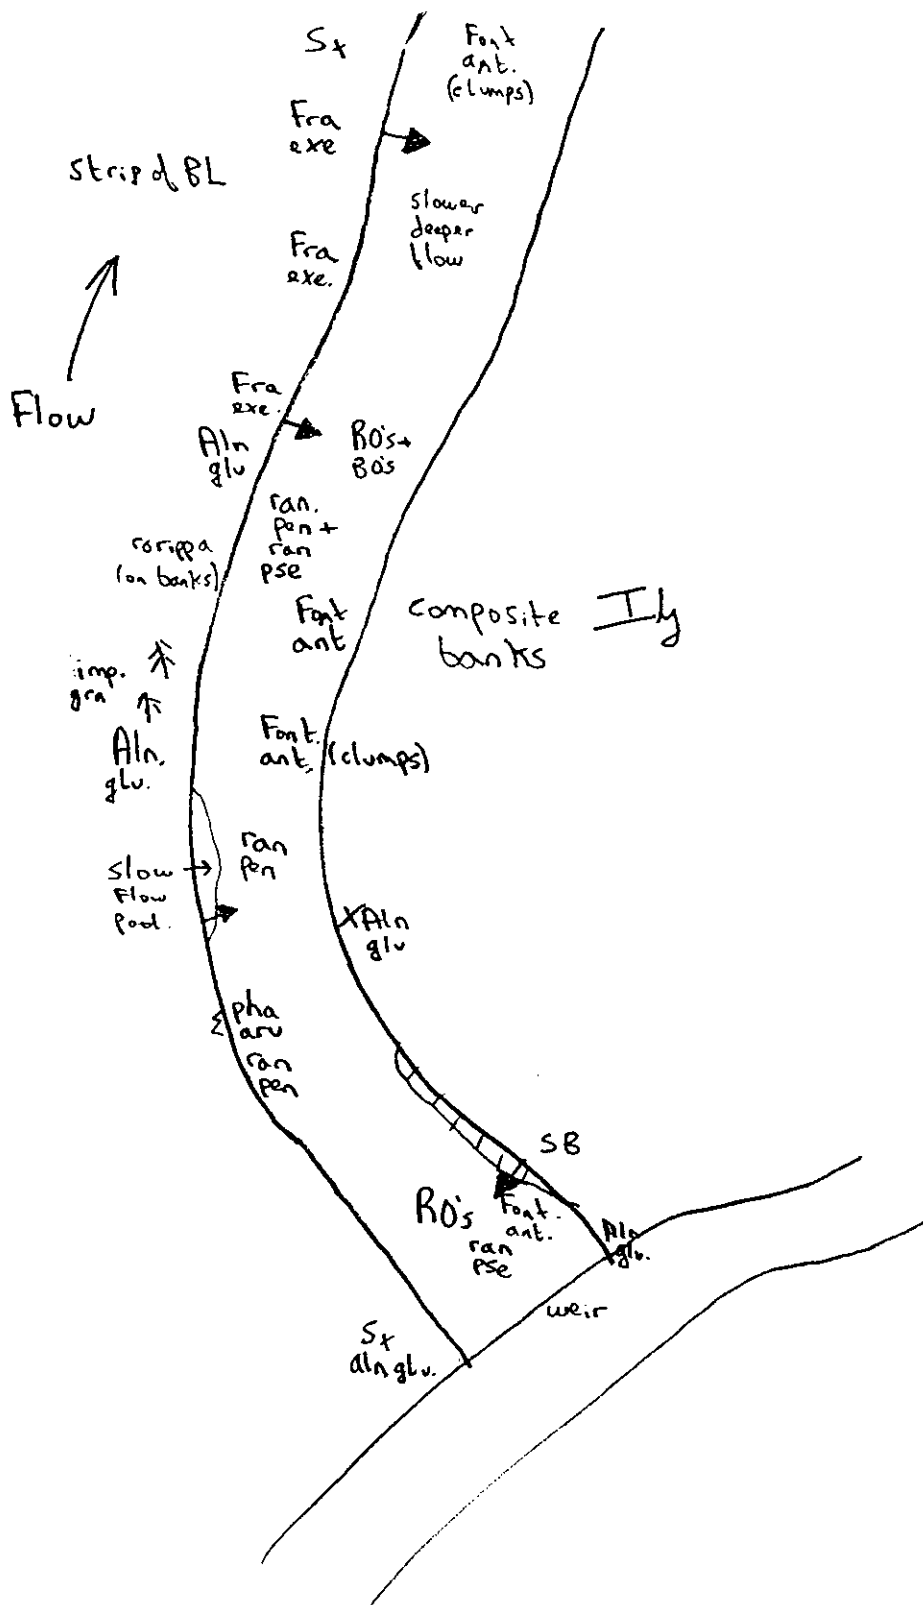 Sx
Font
ant.
(clumps)
Fra
exe
Strip of BL
slower
deeper
flow
Fra
exe.
Flow
Fra
exe.
Aln
glu
RO's+
BO's
ran.
pen +
ran
pse
rorippa
(on banks)
Font
ant
composite
banks
imp.
gra
Aln.
glu.
Font.
ant. (clumps)
ran
pen
slow
flow
pool.
Aln
glu
pha
aru
ran
pen
SB
RO's
Font.
ant.
ran
pse
Aln
glu.
weir
Sx
aln glu.